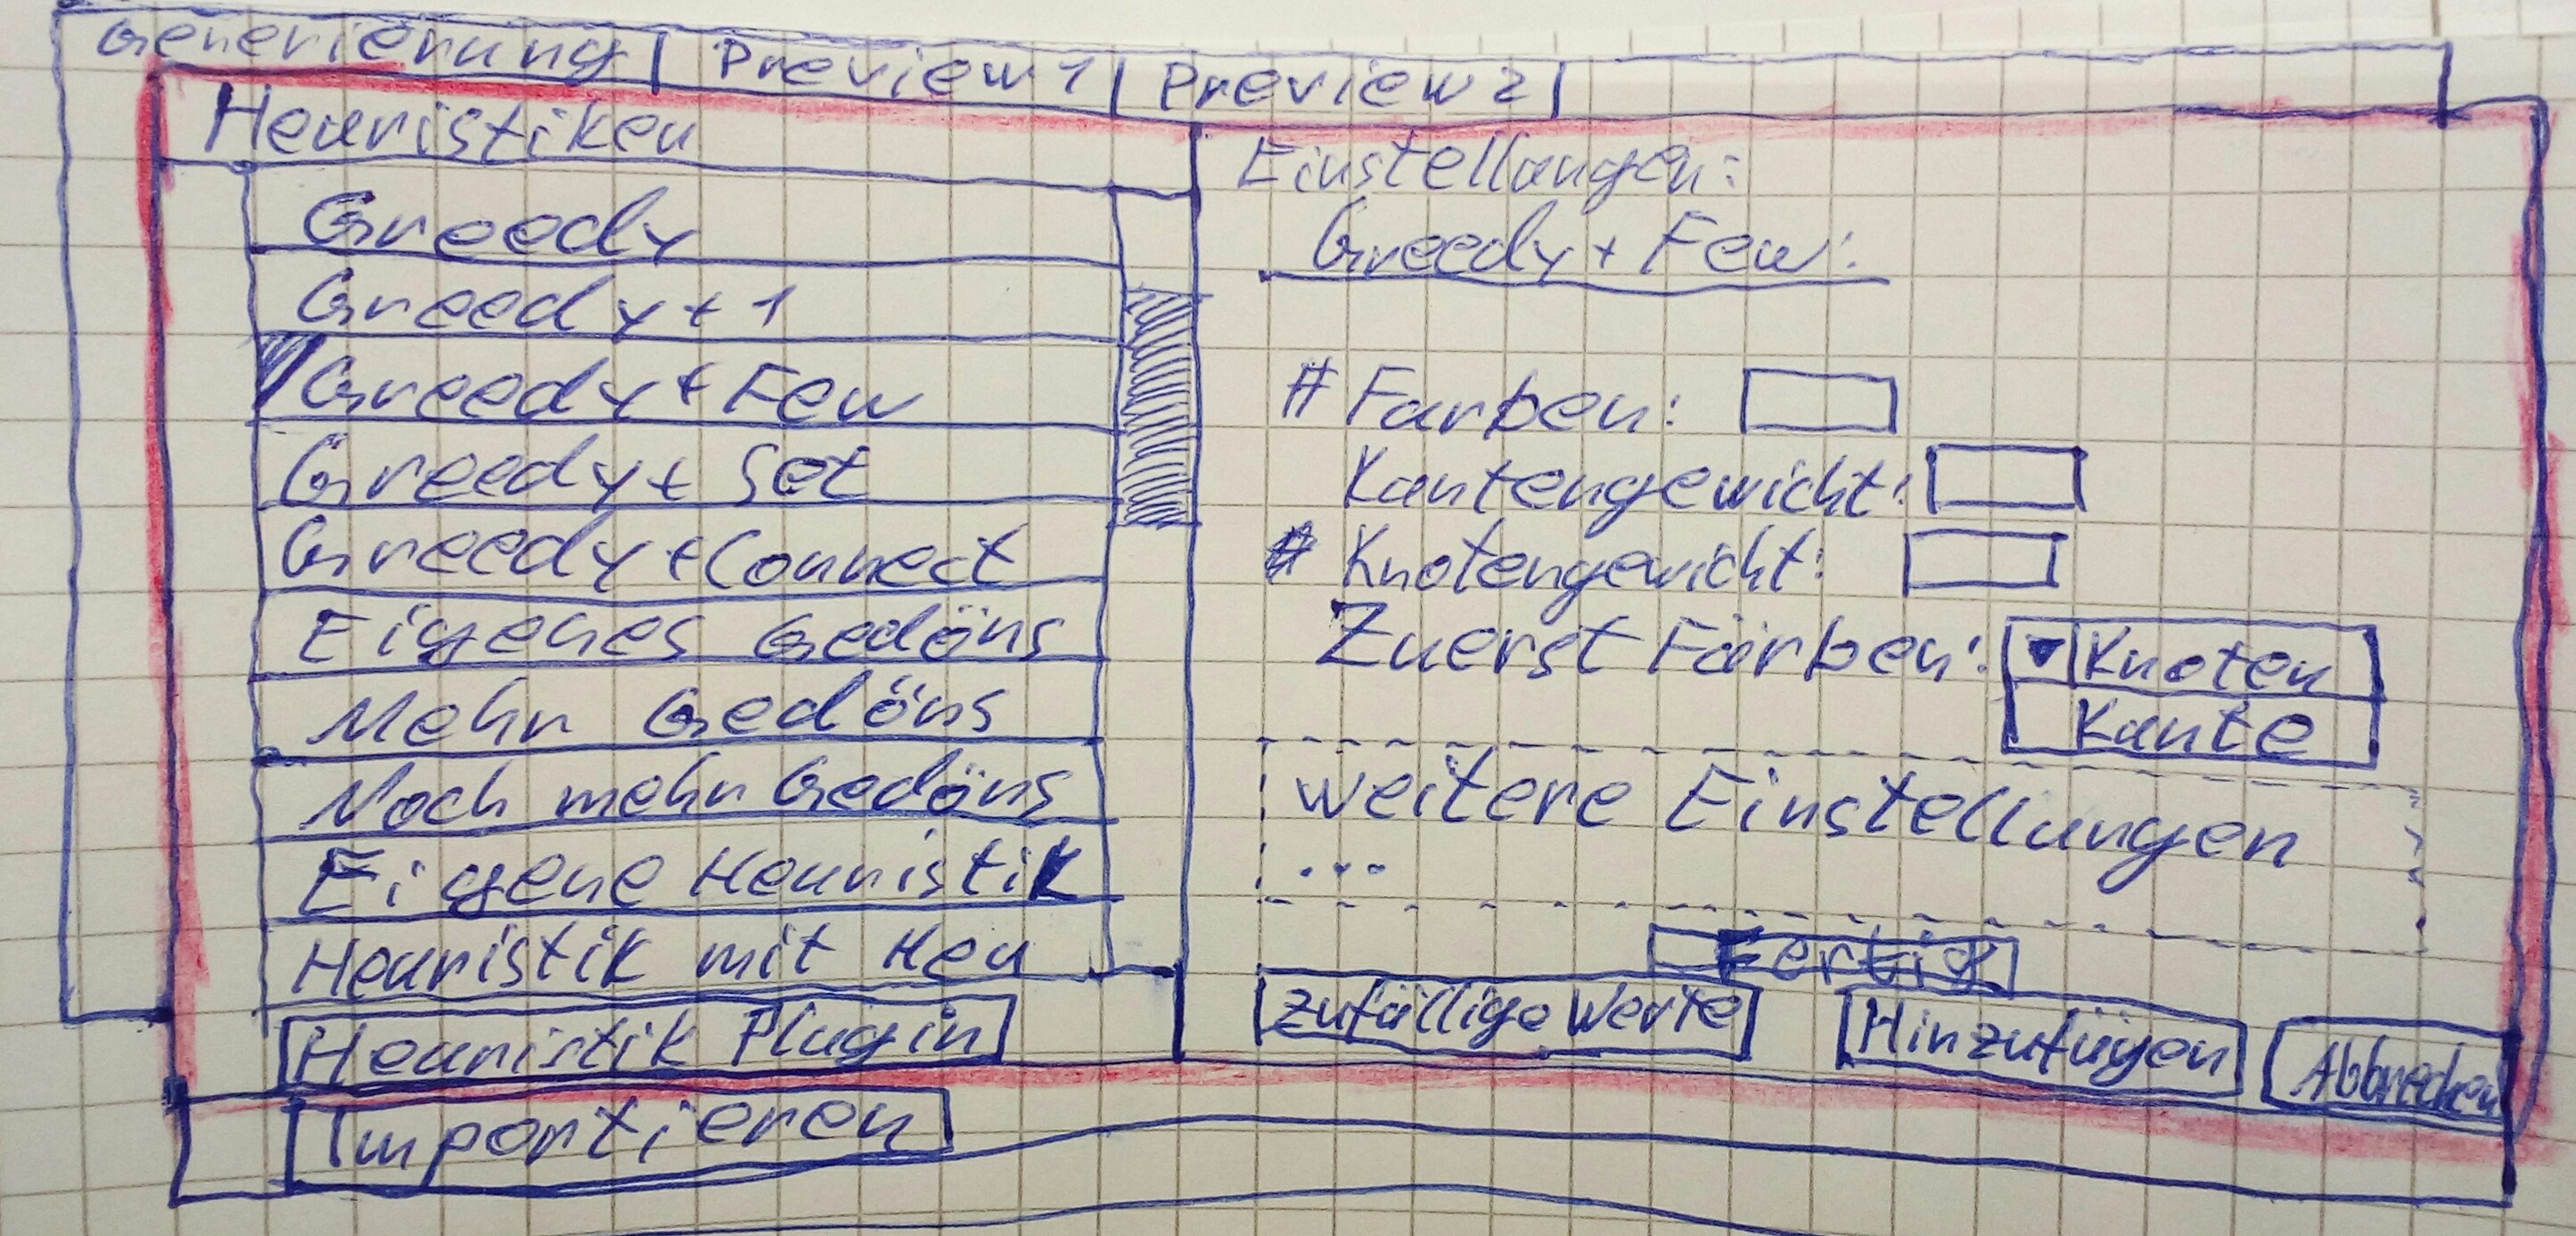 Generierung | Preview 1 | Preview 2
Heuristiken
Greedy
Greedy + 1
Greedy + Few
Greedy + Set
Greedy + Connect
Eigenes Gedöns
Mehr Gedöns
Noch mehr Gedöns
Eigene Heuristik
Heuristik mit Heu
Heuristik Plugin
Importieren
Einstellungen:
Greedy + Few:
# Farben:
Kantengewicht:
# Knotengewicht:
Zuerst Färben: Knoten
Kante
weitere Einstellungen
...
Fertig
Zufällige Werte Hinzufügen Abbrechen